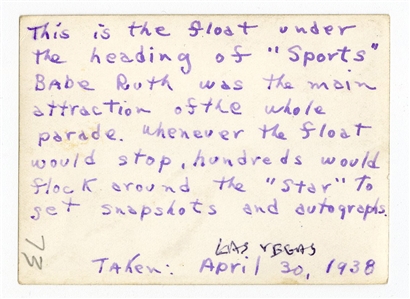 This is the float under
the heading of "Sports"
Babe Ruth was the main
attraction of the whole
parade. Whenever the float
would stop, hundreds would
flock around the "Star" to
get snapshots and autographs.
LAS VEGAS
Taken: April 30, 1938